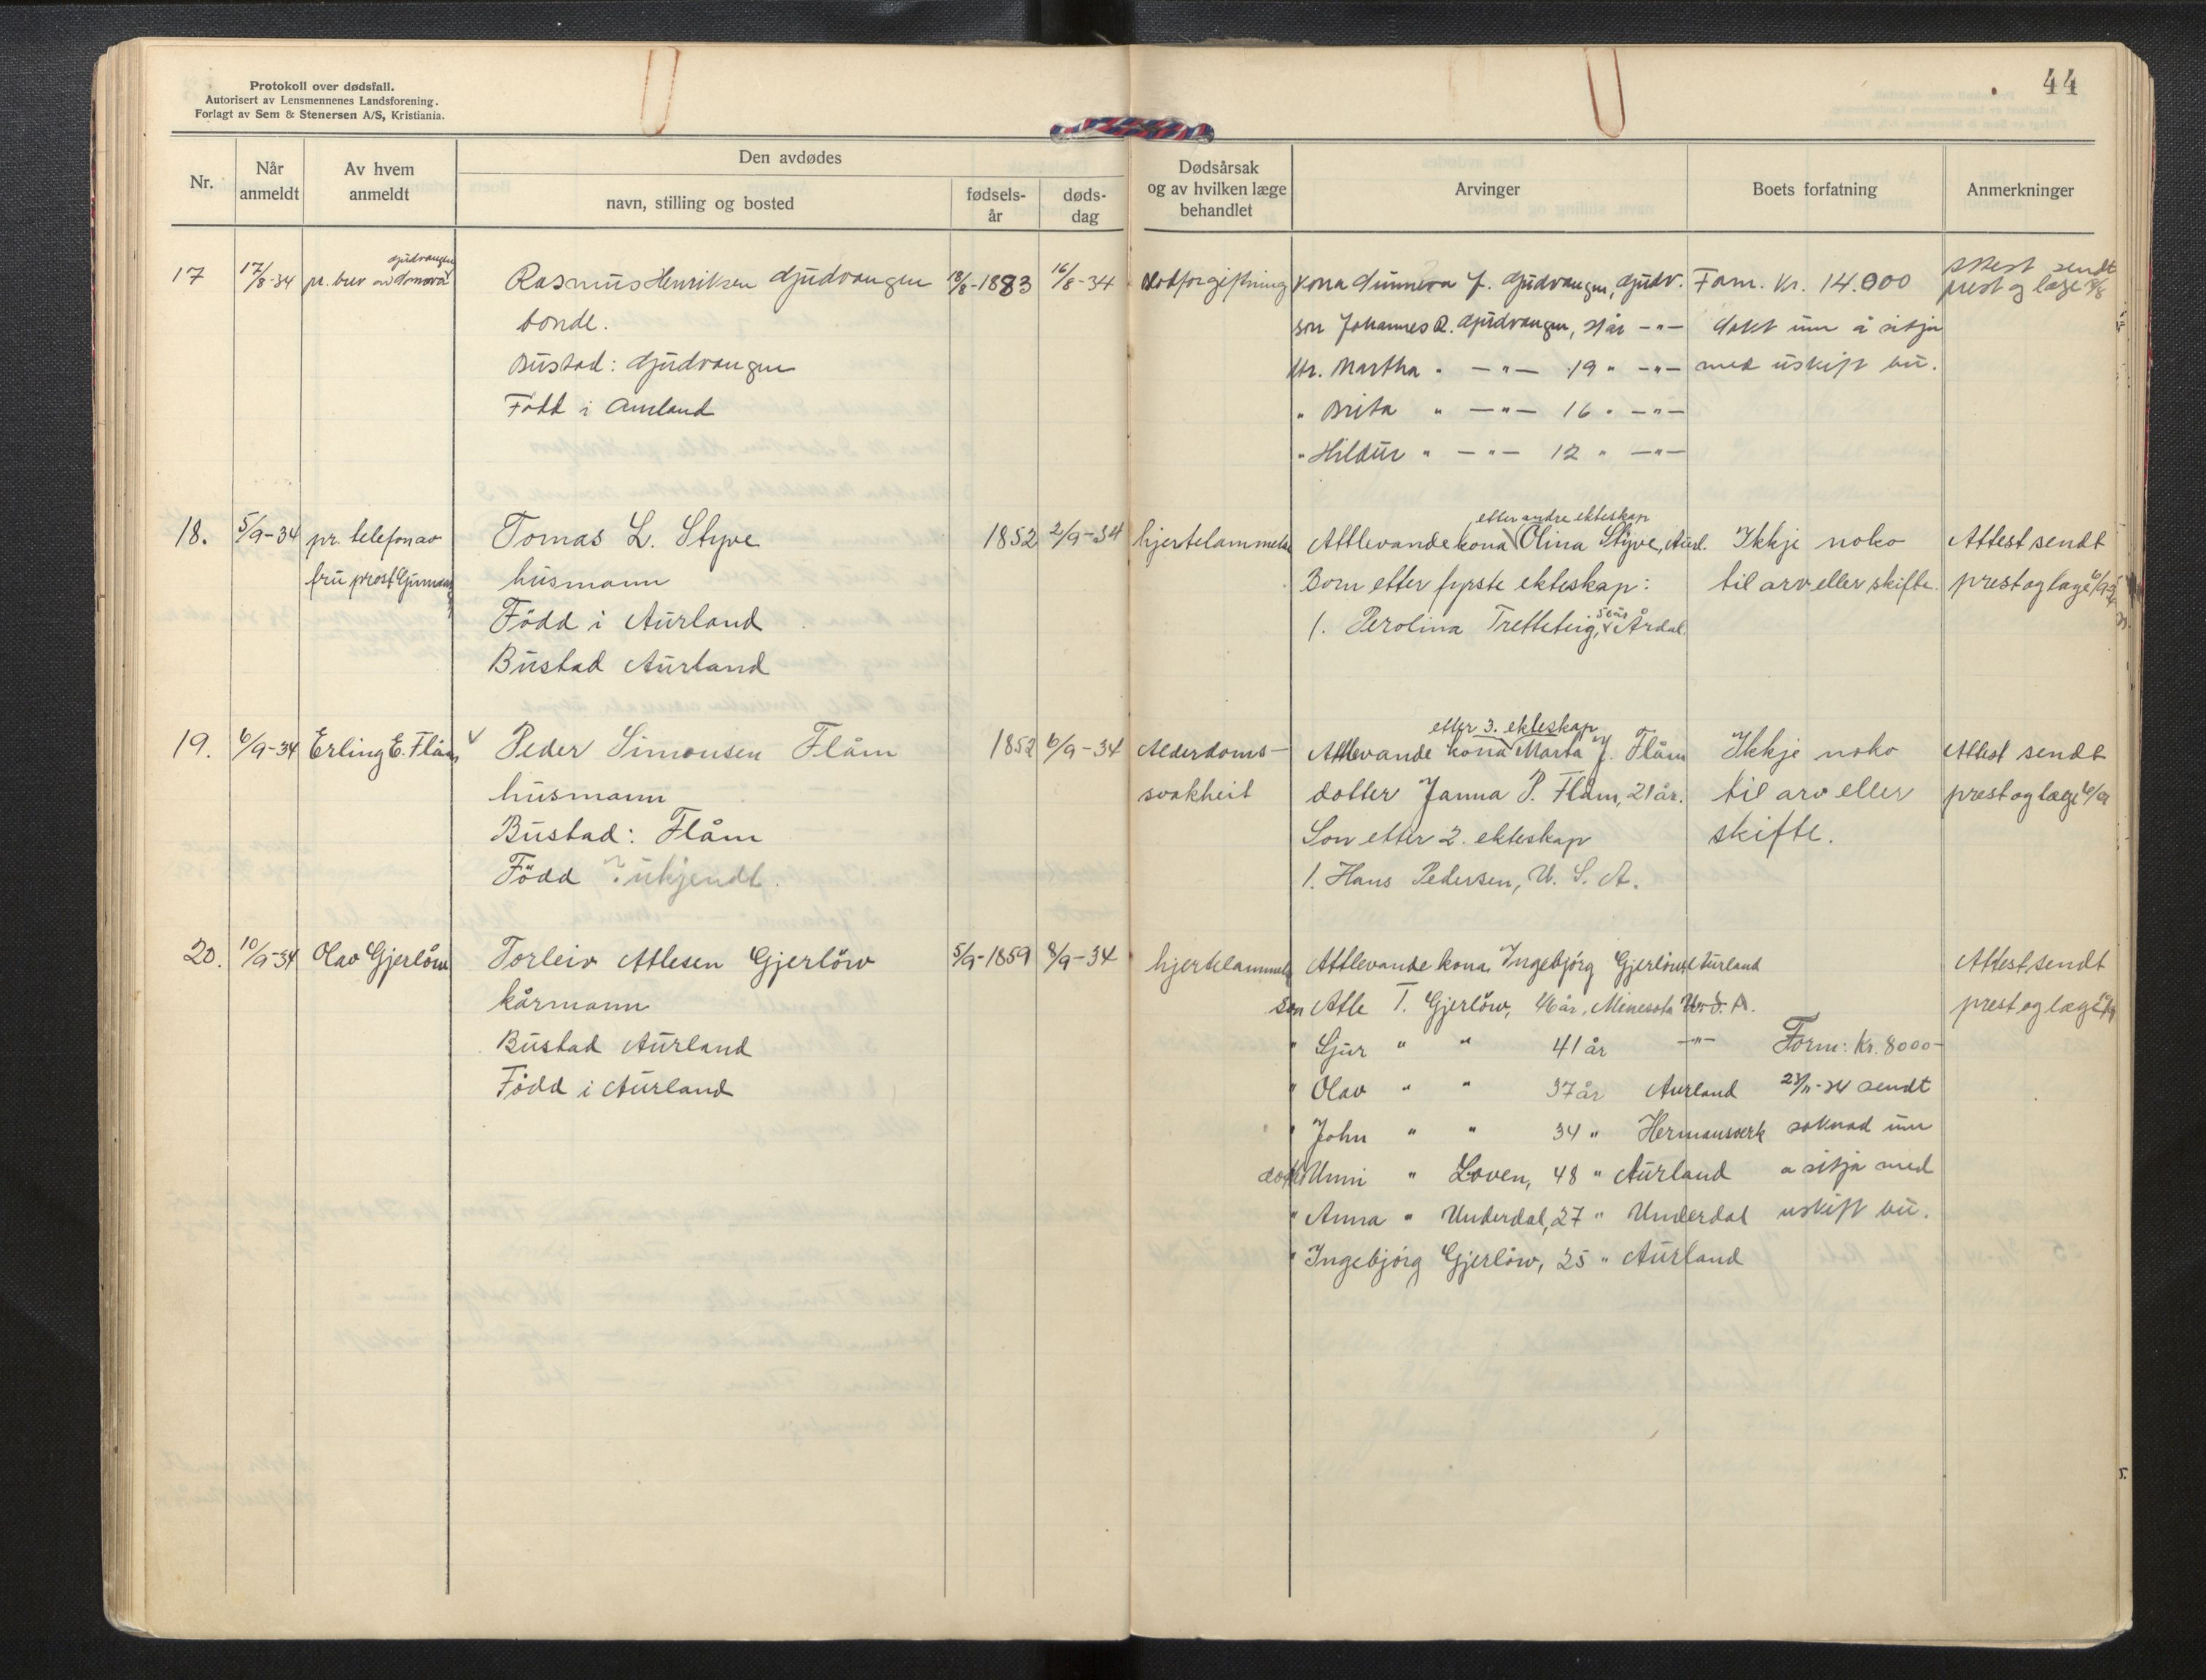 44
Protokoll over dødsfall.
Autorisert av Lensmennenes Landsforening.
Forlagt av Sem & Stenersen A/S, Kristiania.
Nr.
Når anmeldt
Av hvem anmeldt
Den avdødes
navn, stilling og bosted
fødselsår
dødsdag
Dødsårsak og av hvilken læge behandlet
Arvinger
Boets forfatning
Anmerkninger
17 17/8-34 pr. brev Rasmus Henriksen Gjudvangen 18/8-1883 16/8-34 blodforgiftning Kona Gunnvor J. Gjudvangen, Gjudv. Form. Kr. 14.000 Attest sendt
bonde. son Johannes R. Gjudvangen, 21 år -"- søkt um å sitja prest og læge
Bustad: Gjudvangen dtr. Martha " -"- 19 " -"- med uskift bu.
Født i Aurland " Brita " -"- 16 " -"-
" Hildur " -"- 12 " -"-
etter andre ekteskap
18. 5/9-34 pr. telefon av Tomas L. Styve 1852 2/9-34 hjertelammelse Attlevande kona Olina Styve, Aurl. Ikkje noko Attest sendt
fru prost husmann Born etter fyrste ekteskap: til arv eller skifte. prest og læge 6/9-34
Född i Aurland 1. Perolina Tretteteig, Årdal.
Bustad Aurland
etter 3. ekteskap
19. 6/9-34 Erling E. Flåm Peder Simonsen Flåm 1852 6/9-34 Alderdoms- Attlevande kona Marta J. Flåm Ikkje noko Attest sendt
husmann svakheit dotter Janna P. Flåm, 21 år. til arv eller prest og læge 6/9
Bustad: Flåm Son etter 2. ekteskap skifte.
Född ? ukjendt. 1. Hans Pedersen, U. S. A.
20. 10/9-34 Olav Gjerlöw Torleiv Atlesen Gjerlöw 5/9-1859 8/9-34 hjertelammelse Attlevande kona Ingebjörg Gjerlöw, Aurland Attest sendt
kårmann son Atle T. Gjerlöw, 46 år, Minesota U. S. A. prest og læge
Bustad Aurland " Sjur " " 41 år -"- Form: Kr. 8000-
Född i Aurland " Olav " " 37 år Aurland 23/11-34 sendt
" John " " 34 " Hermansverk søknad um
dott. Unni " Loven, 48 " Aurland a sitja med
" Anna " Underdal, 27 " Underdal uskift bu.
" Ingebjörg Gjerlöw, 25 " Aurland